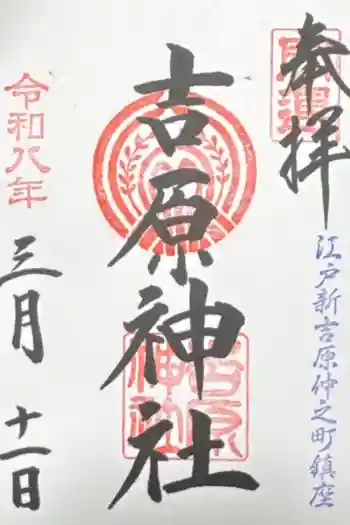 奉拝
江戸新吉原仲之町鎮座
吉原神社
吉原神社
令和八年
三月十一日